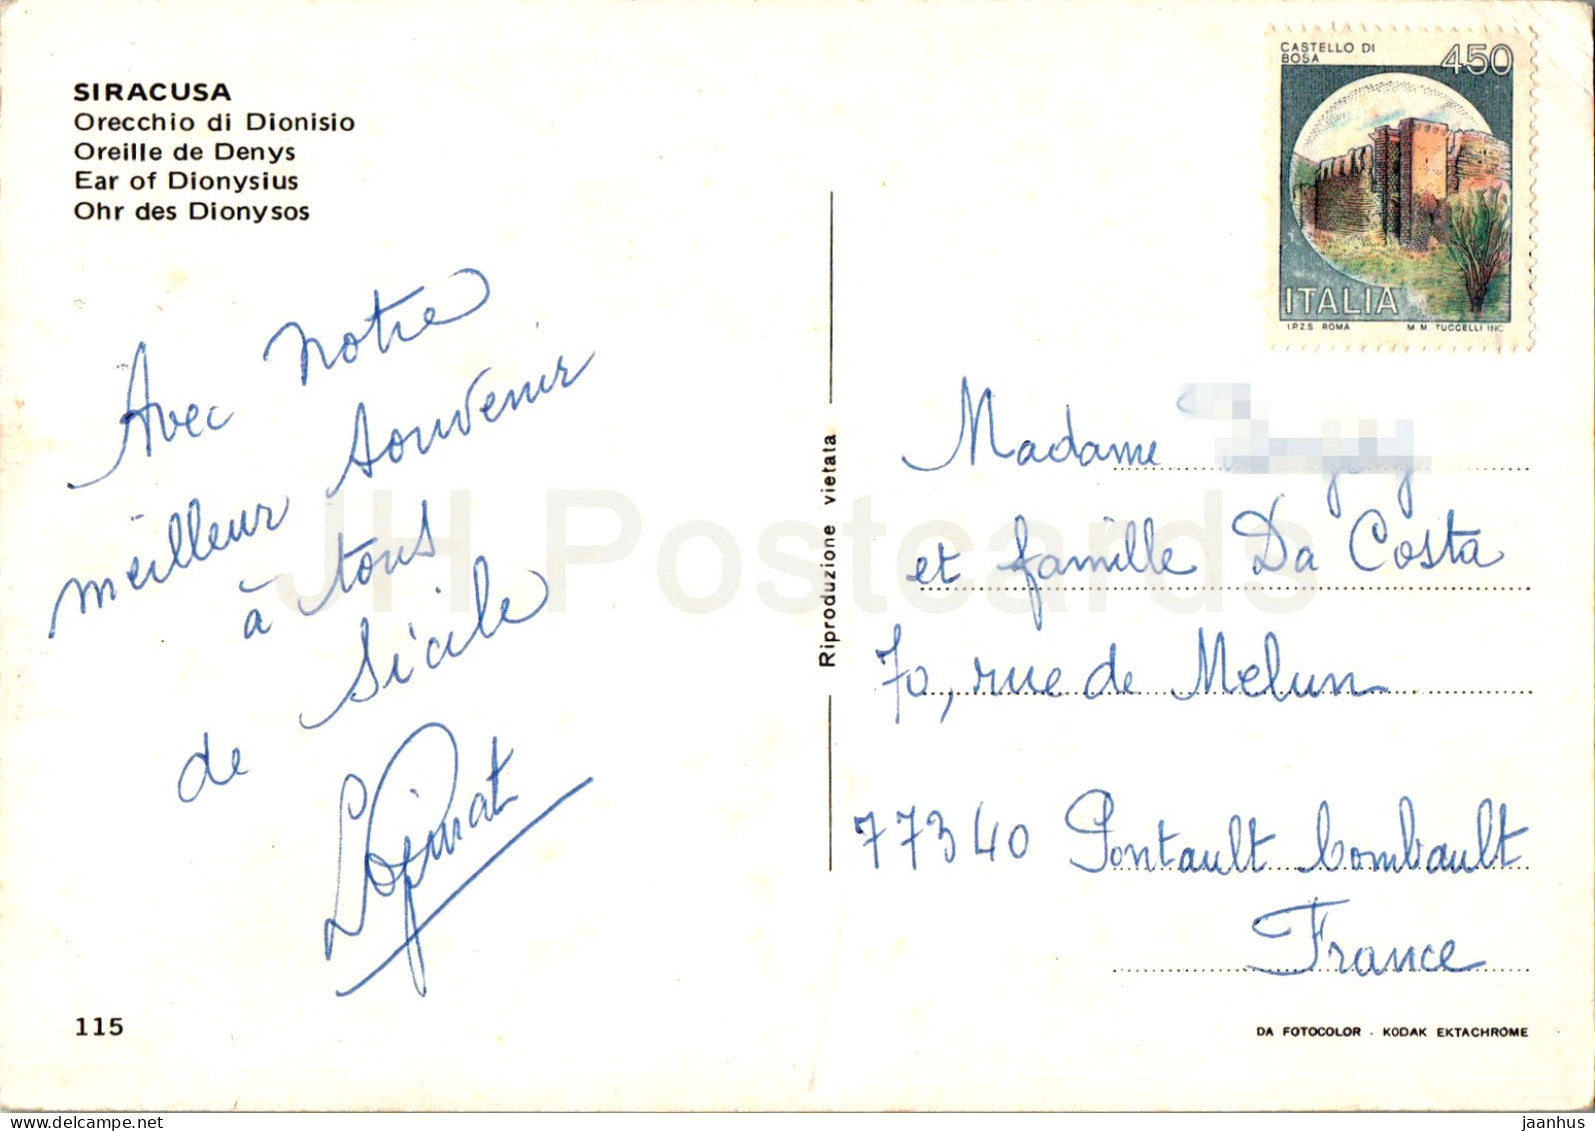 SIRACUSA
Orecchio di Dionisio
Oreille de Denys
Ear of Dionysius
Ohr des Dionysos
Avec notre
meilleur souvenir
à tous
de Sicile
115
Riproduzione vietata
CASTELLO DI
BOSA
450
ITALIA
I.P.Z.S. ROMA M. M. TUCCELLI INC.
Madame
et famille Da Costa
70, rue de Melun
77340 Pontault Combault
France
DA FOTOCOLOR - KODAK EKTACHROME
JH Postcards
www.delcampe.net
jaanhus